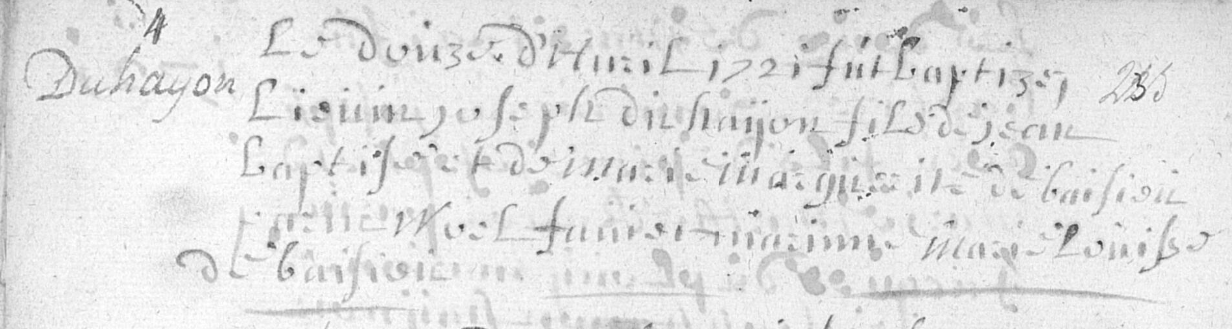 4
Duhayon
Le douze d'Avril 1721 fut baptizé,
Lievin joseph duhaijon fils de jean
baptise et de marie marguerite de baisieu
parin Noel favier marinne marie Louisse
de baisieu